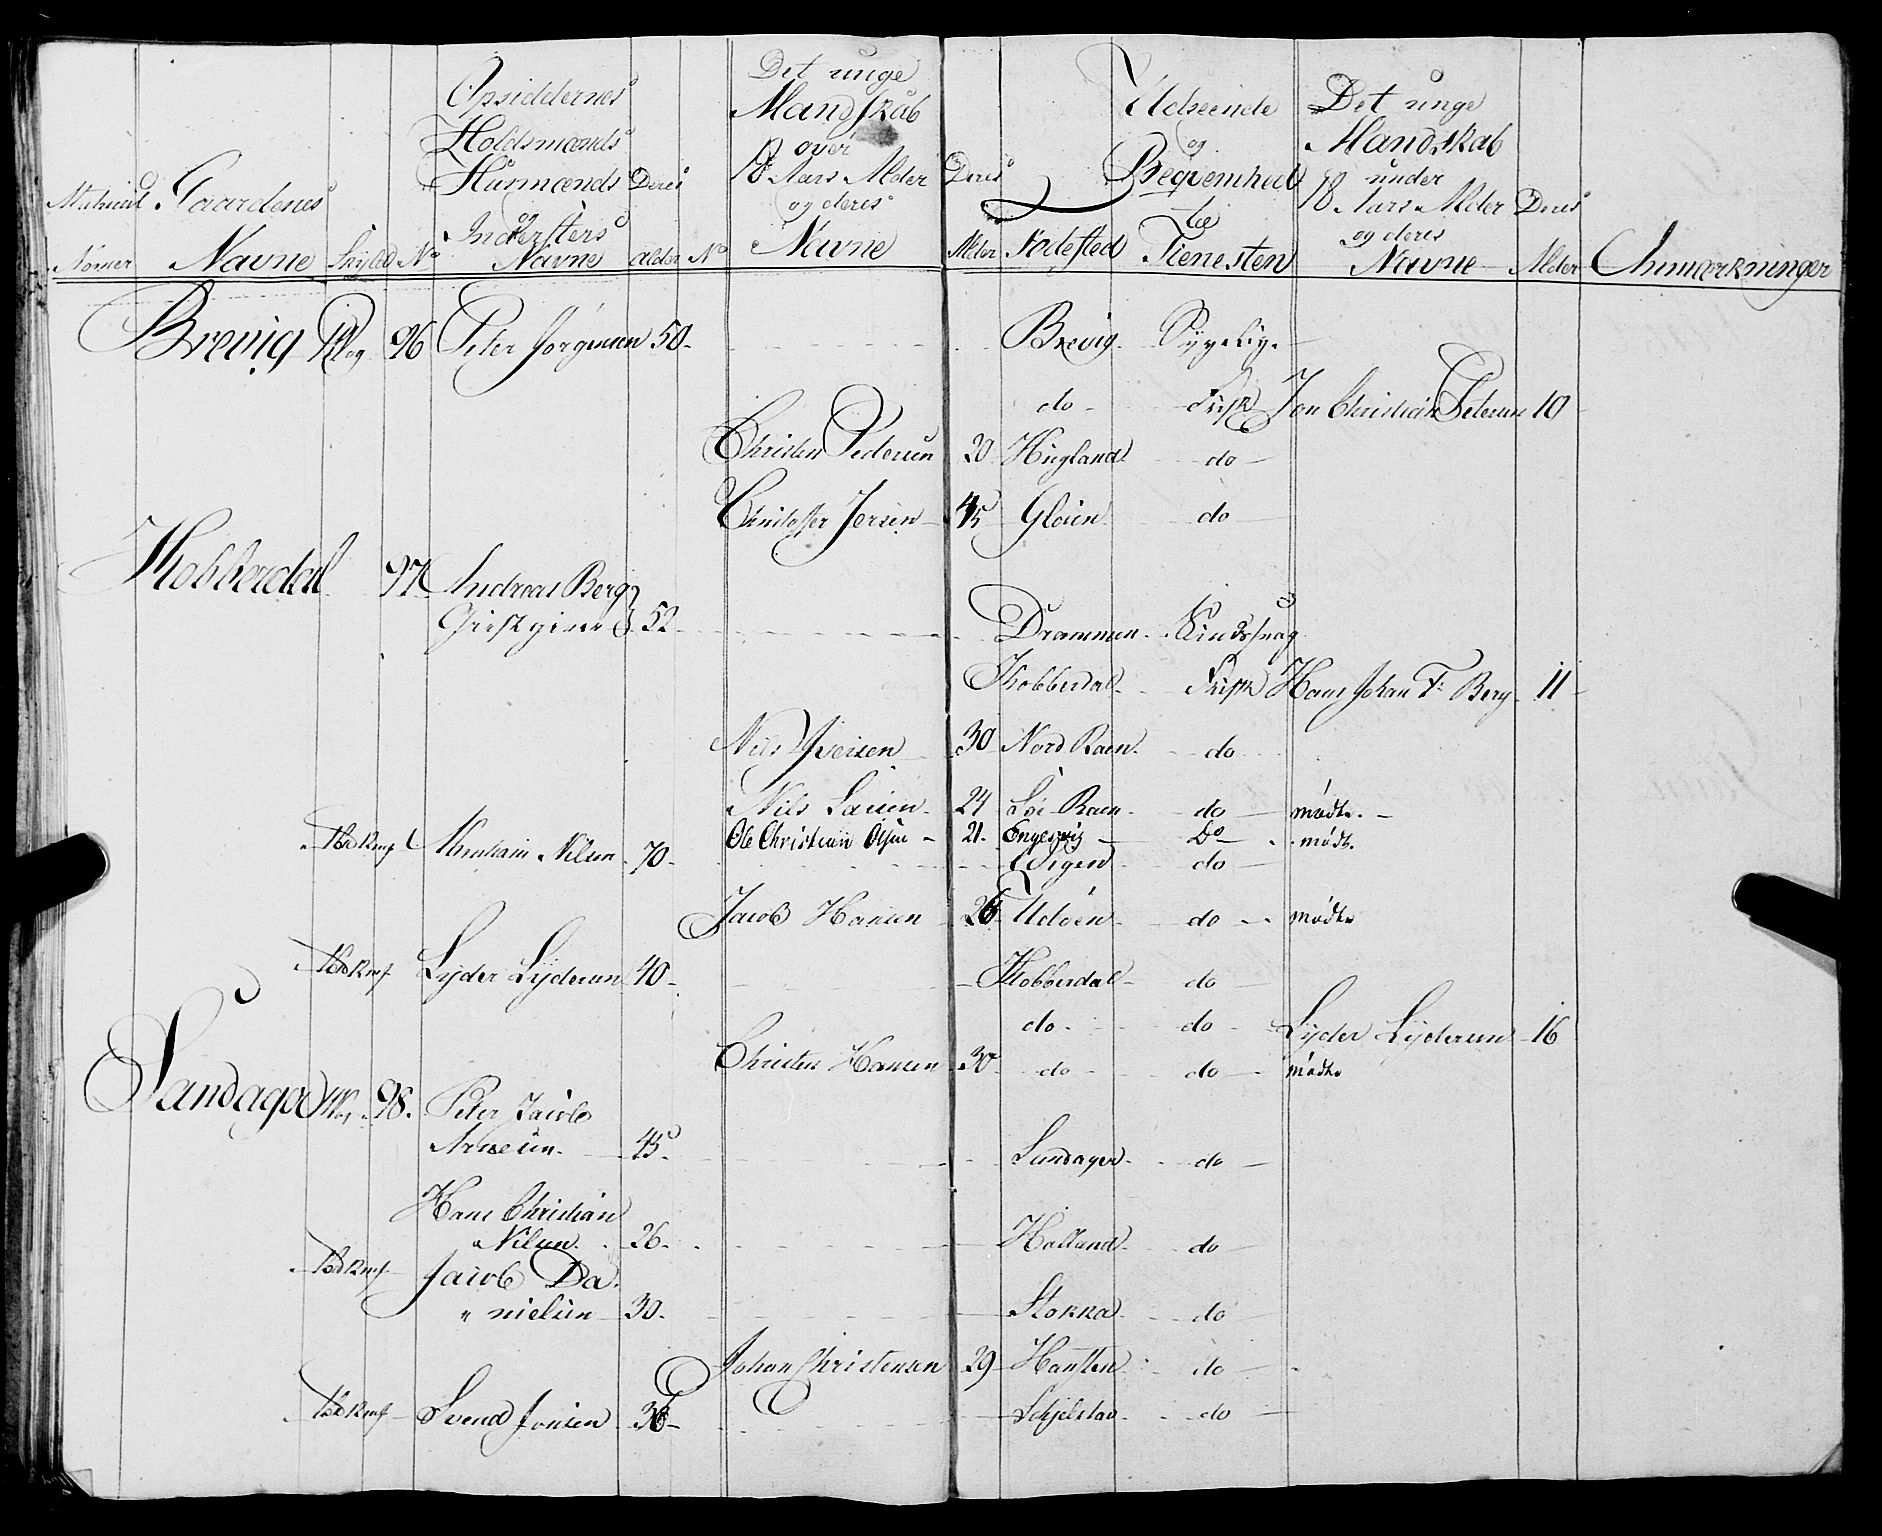 Matricul Nomer
Gaardenes Navne
Skyld
No
Opsiddernes Holdsmænds Huusmænds og Inderster's Navne
Deres Alder
No
Det unge Mandskab over 18 Aars Alder og deres Navne
Deres Alder
Fødested
Udseende og Beqvemhed til Tienesten
Det unge Mandskab under 18 Aars Alder og deres Navne
Deres Alder
Anmærkninger
Brevig 96 Peter Jørgensen 50 - Brevig Sygelig
do Frisk Jon Christian Pedersen 10
Christen Pedersen 20 Høgland do
Christoffer Jensen 45 do
Kobberdal 97 Andreas Berg
Giestgiver 52 - Drammen
Kobberdal Frisk Hans Johan F: Berg 11
Nils Iversen 30 Nord Raen do
Nils Larsen 24 Sør Raen do mødte
Ole Christian Olsen 21 Do mødte
Abraham Nilsen 70 - Vigen do
Jacob Hansen 26 Udøen do mødte
Lyder Lydersen 40 - Kobberdal do
do do Lyder Lydersen 16
Christen Hansen 30 do do mødte
Sandager 98 Peter Jacob
Arnesen 45 - Sandager do
Hans Christian
Nilsen 26 - Halland do
Jacob Da
nielsen 30 - Stokka do
Johan Christensen 29 do
Svend Jonsen 36 - do